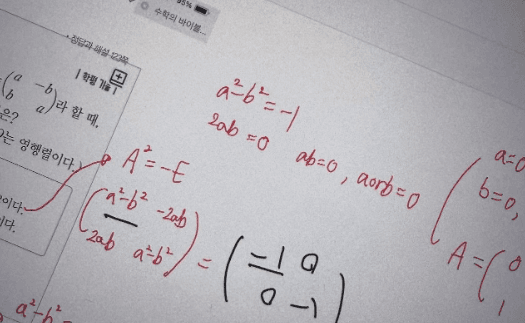 95%
수학의 바이블...
정답과 해설 122쪽
| 학평 기출 |
(a -b
b a)라 할 때,
은?
는 영행렬이다.)
이다.
이다.
a²-b²=-1
2ab=0
ab=0, a or b=0
a=0
b=0,
A²=-E
(a²-b² -2ab
2ab a²-b²) = (-1 0
0 -1)
A=(0
1
a²-b²=